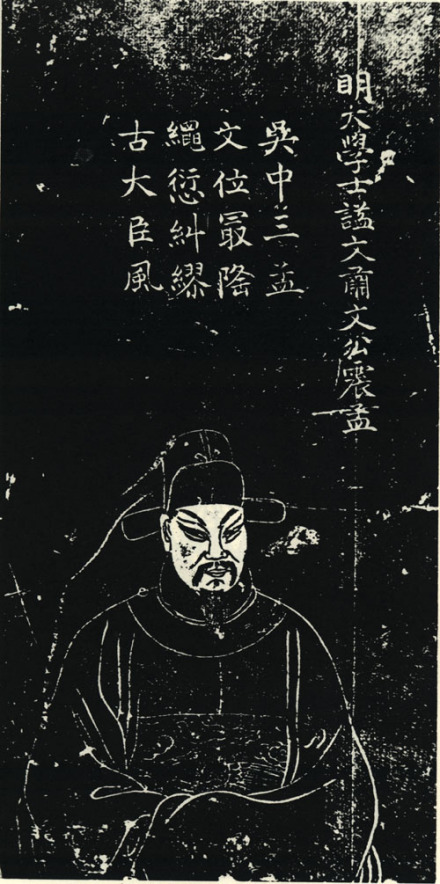 明大學士謚文肅文公震孟
吳中三孟
文位最隆
繩愆糾繆
古大臣風